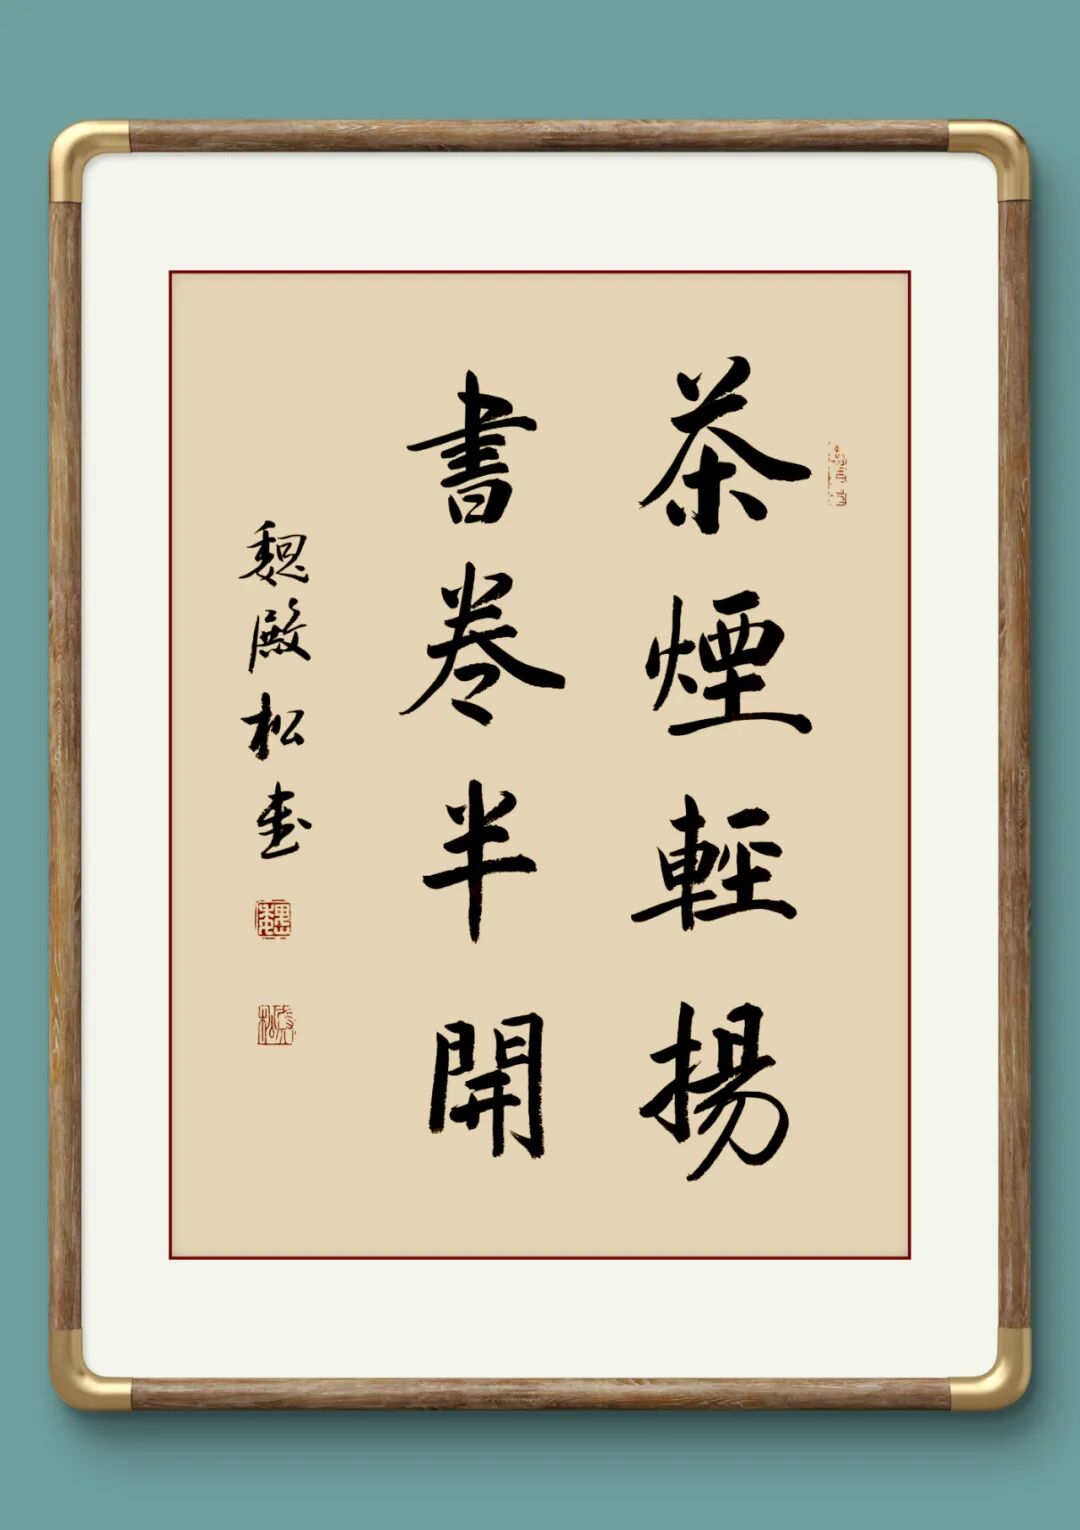 茶煙輕揚
書卷半開
魏殿松書
魏